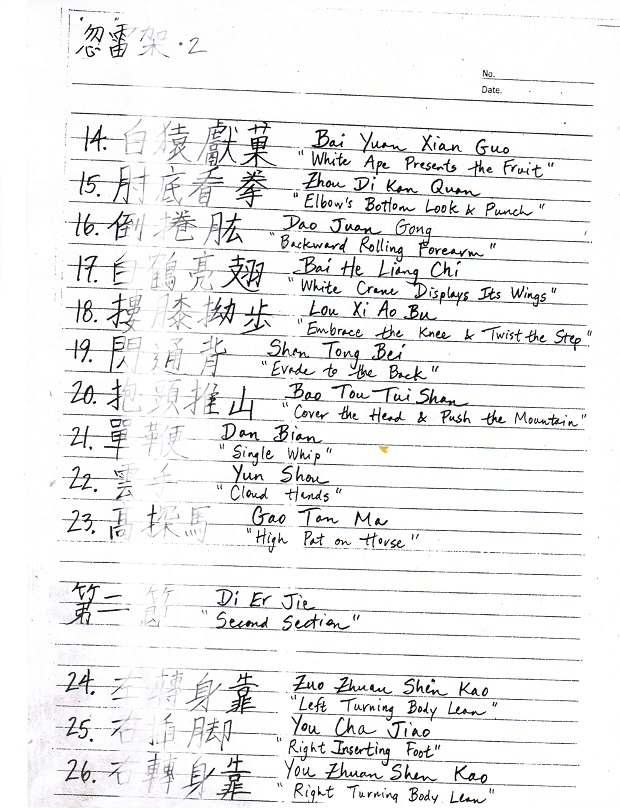 "忽"雷架·2
No.
Date.
14. 白猿獻菓 Bai Yuan Xian Guo
"White Ape Presents the Fruit"
15. 肘底看拳 Zhou Di Kan Quan
"Elbow's Bottom Look & Punch"
16. 倒捲肱 Dao Juan Gong
"Backward Rolling Forearm"
17. 白鶴亮翅 Bai He Liang Chi
"White Crane Displays Its Wings"
18. 摟膝拗步 Lou Xi Ao Bu
"Embrace the Knee & Twist the Step"
19. 閃通背 Shan Tong Bei
"Evade to the Back"
20. 抱頭推山 Bao Tou Tui Shan
"Cover the Head & Push the Mountain"
21. 單鞭 Dan Bian
"Single Whip"
22. 雲手 Yun Shou
"Cloud Hands"
23. 高探馬 Gao Tan Ma
"High Pat on Horse"
第二節 Di Er Jie
"Second Section"
24. 左轉身靠 Zuo Zhuan Shen Kao
"Left Turning Body Lean"
25. 右插脚 You Cha Jiao
"Right Inserting Foot"
26. 右轉身靠 You Zhuan Shen Kao
"Right Turning Body Lean"